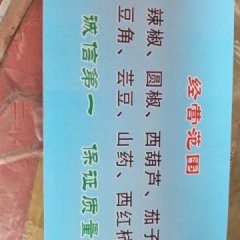 经营范围
辣椒、圆椒、西葫芦、茄子
豆角、芸豆、山药、西红柿
诚信第一 保证质量